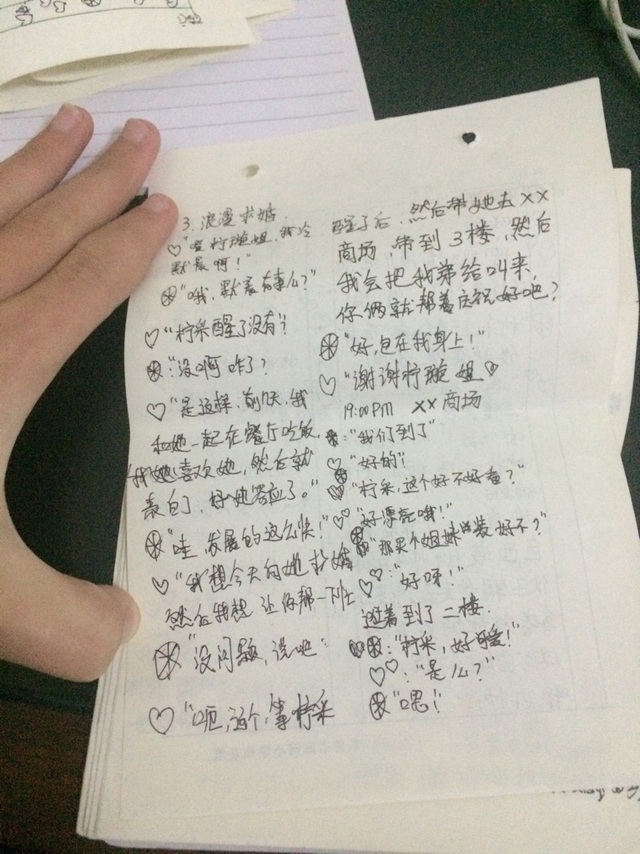 3. 浪漫求婚.
♡“喂柠璇姐,我冷
默辰啊!”
“哦,默辰有事么?”
♡“柠采醒了没有?
:“没啊 咋了?
♡“是这样,前几天,我
和她一起在餐厅吃饭,
我她喜欢她,然后就
表白了,她答应了。”
“哇,发展的这么快!”
♡“我想今天向她求婚
然后我想 让你帮一下忙
“没问题,说吧:
♡“呃,这个,等柠采
醒了后,然后带她去××
商场,带到3楼,然后
我会把我弟给叫来,
你俩就帮着庆祝好吧?
“好,包在我身上!”
♡“谢谢柠璇姐♡
19:00PM ××商场
:“我们到了”
“好的!”
“柠采,这个好不好看?”
♡♡“好漂亮哦!”
“那买个姐妹装好不?”
♡♡:“好呀!”
逛着到了二楼.
:“柠采,好可爱!”
♡♡:“是么?”
“嗯!